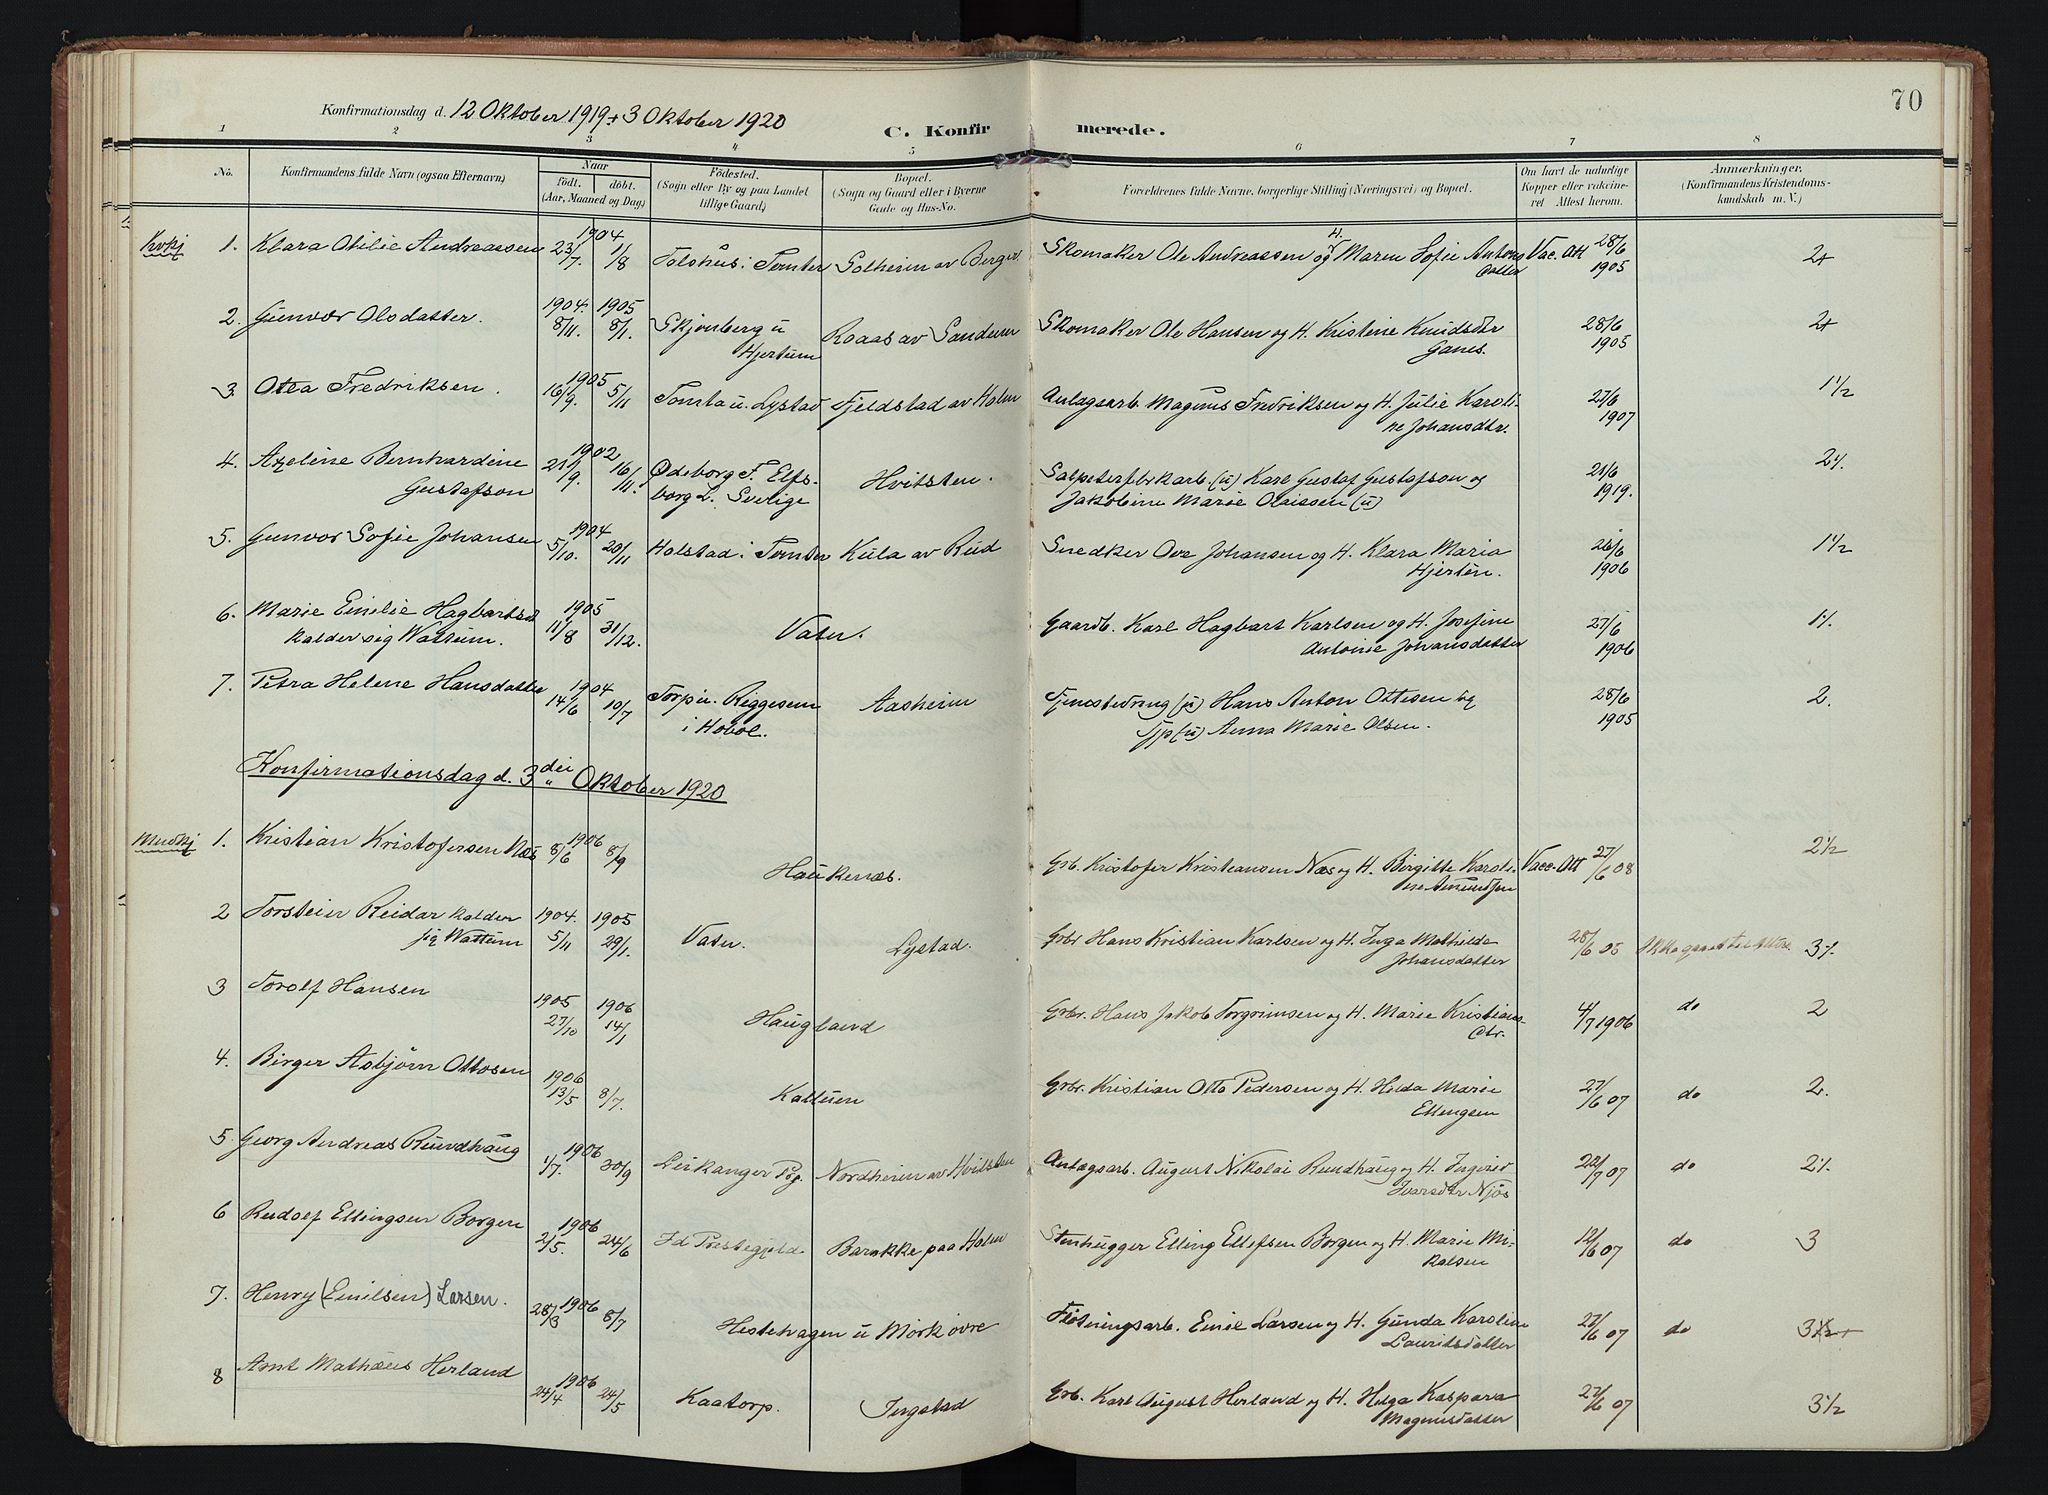 70
Konfirmationsdag d. 12 Oktober 1919 + 3 Oktober 1920
C. Konfirmerede.
1 2 3 4 5 6 7 8
No. Konfirmandens fulde Navn (ogsaa Efternavn) Naar født. døbt. (Aar, Maaned og Dag) Fødested. (Sogn eller By og paa Landet tillige Gaard) Bopæl. (Sogn og Gaard eller i Byerne Gade og Hus-No. Forældrenes fulde Navne, borgerlige Stilling (Næringsvei) og Bopæl. Om havt de naturlige Kopper eller vakcineret Attest herom. Anmærkninger. (Konfirmandens Kristendomskundskab m. V.)
Kvkj 1. Klara Otilie Andreassen 1904 23/7. 1/8 Falshus i Tomter Solheim av Berger Skomaker Ole Andreassen og H. Maren Sofie Antons datter Vac. Att 28/6 1905 2+
2. Gunvor Olsdatter. 1904. 8/11. 1905 8/1. Skjønberg u Hjertum Roaas av Sandum Skomaker Ole Hansen og H. Kristine Knudsdtr Ganes. 28/6 1905 2+
3. Otea Fredriksen. 1905 16/9. 5/11 Tomta u. Lystad Fjeldstad av Holm Anlagsarb. Magnus Fredriksen og H. Julie Karoline Johansdtr. 27/6 1907 1 1/2
4. Axeline Bernhardine Gustafson 1902 21/9. 16/11. Ødeborg F. Elfsborg L. Sverige Hvitsten. Salpeterfbrkarb. (u) Karl Gustaf Gustafson og Jakobine Marie Olaissen (u) 21/6 1919. 2 1/.
5. Gunvor Sofie Johansen 1904 5/10. 20/11 Holstad i Tomter Kula av Rud Snedker Ove Johansen og H. Klara Maria Hjerten. 26/6 1906 1 1/2
6. Marie Emilie Hagbartsd kalder sig Wattum. 1905 11/8 31/12. Vatn. Gaardb. Karl Hagbart Karlsen og H. Josefine Antoine Johansdatter 27/6 1906 1 1/.
7. Petra Helene Hansdatter 1904 14/6 10/7 Torp u. Riggesum i Hobøl. Aasheim Tjenestedreng (u) Hans Anton Ottesen og Tjp (u) Anna Marie Olsen. 28/6 1905 2.
Konfirmationsdag d. 3die Oktober 1920
Mndkj 1. Kristian Kristofersen Næs 1906 8/6 8/9 Haukenæs. Grb. Kristofer Kristiansen Næs og H. Birgitte Karoline Amundsen Vacc. Att 27/6 08 2 1/2
2 Torstein Reidar kalder sig Wattum 1904. 5/11 1905 29/1. Vatn. Lystad. Grbr Hans Kristian Karlsen og H. Inga Mathilde Johansdatter 28/6 05 3 1/.
3 Torolf Hansen 1905 27/10 1906 14/1 Haugland Grbr. Hans Jakob Torgrimsen og H. Marie Kristiansdtr. 4/7 1906 do 2
4. Birger Asbjørn Ottosen 1906 13/5 8/7. Kattuen Grbr. Kristian Otto Pedersen og H. Hilda Marie Ellingsen 27/6 07 do 2.
5. Georg Andreas Rundhaug 1906 1/7. 30/9 Leikanger Pgj. Nordheim av Hvitsten Anlægsarb. August Nikolai Rundhaug og H. Ingerid Ivarsdtr Njøs 22/7 07 do 2 1/.
6 Rudolf Ellingsen Borgen 1906 2/5. 24/6 Id Prestegjeld Barakke paa Holm Stenhugger Elling Ellefsen Borgen og H. Marie Mikalsen 12/6 07 do 3
7. Henry (Emilsen) Larsen. 1906 28/3 8/7 Hestehagen u Mørk øvre Fløtningsarb. Emil Larsen og H. Gunda Karoline Lauritsdatter 27/6 07 do 3 1/2+
8 Arnt Mathæus Herland 1906 24/4 24/5 Kaatorp. Ingstad Grb. Karl August Herland og H. Helga Kaspara Magnusdatter 27/6 07 3 1/2